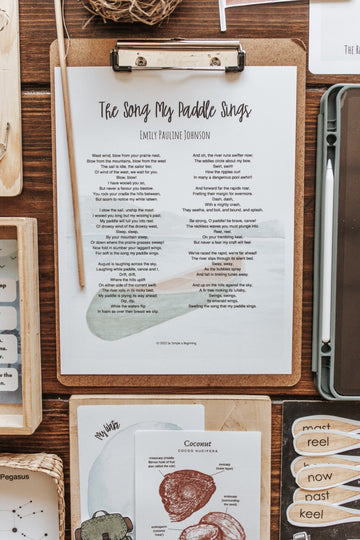 The Song My Paddle Sings
EMILY PAULINE JOHNSON
West wind, blow from your prairie nest,
Blow from the mountains, blow from the west
The sail is idle, the sailor too;
O! wind of the west, we wait for you.
Blow, blow!
I have wooed you so,
But never a favour you bestow.
You rock your cradle the hills between,
But scorn to notice my white lateen.
I stow the sail, unship the mast:
I wooed you long but my wooing's past;
My paddle will lull you into rest.
O! drowsy wind of the drowsy west,
Sleep, sleep,
By your mountain steep,
Or down where the prairie grasses sweep!
Now fold in slumber your laggard wings,
For soft is the song my paddle sings.
August is laughing across the sky,
Laughing while paddle, canoe and I,
Drift, drift,
Where the hills uplift
On either side of the current swift.
The river rolls in its rocky bed;
My paddle is plying its way ahead;
Dip, dip,
While the waters flip
In foam as over their breast we slip.
And oh, the river runs swifter now;
The eddies circle about my bow.
Swirl, swirl!
How the ripples curl
In many a dangerous pool awhirl!
And forward far the rapids roar,
Fretting their margin for evermore.
Dash, dash,
With a mighty crash,
They seethe, and boil, and bound, and splash.
Be strong, O paddle! be brave, canoe!
The reckless waves you must plunge into
Reel, reel.
On your trembling keel,
But never a fear my craft will feel.
We've raced the rapid, we're far ahead!
The river slips through its silent bed.
Sway, sway,
As the bubbles spray
And fall in tinkling tunes away.
And up on the hills against the sky,
A fir tree rocking its lullaby,
Swings, swings,
Its emerald wings,
Swelling the song that my paddle sings.
© 2022 Le Simple is Beginning
Pegasus
My Note
Coconut
COCOS NUCIFERA
mast
reel
now
nast
oxen